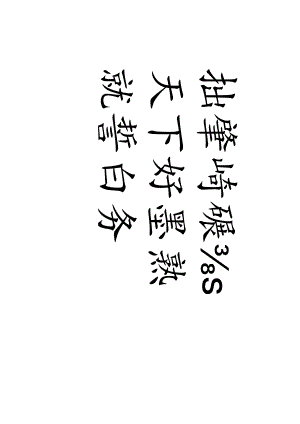 拙肇崎碾⅜S
天下好墨熟
就誓白务